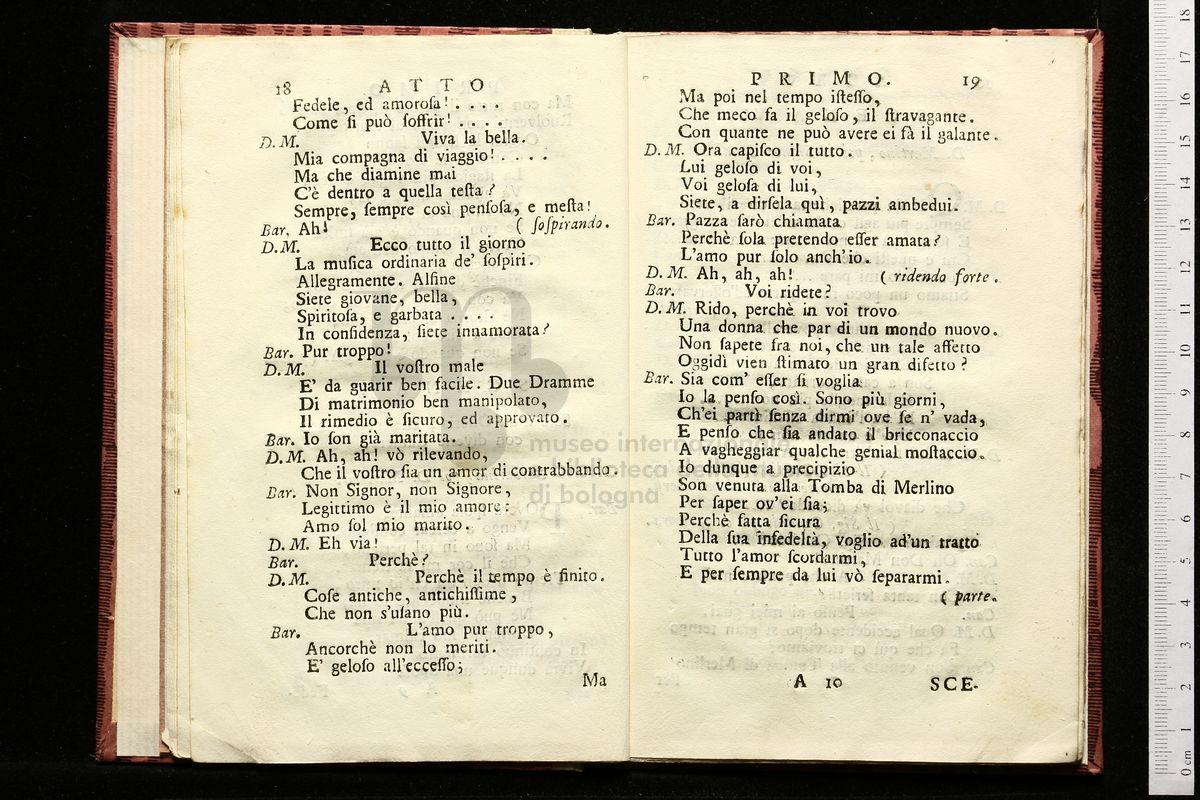 18 ATTO
Fedele, ed amoroſa! . . . .
Come ſi può ſoffrir! . . . .
D. M. Viva la bella.
Mia compagna di viaggio! . . . .
Ma che diamine mai
C'è dentro a quella teſta?
Sempre, ſempre così penſoſa, e meſta!
Bar. Ah! ( ſoſpirando.
D. M. Ecco tutto il giorno
La muſica ordinaria de' ſoſpiri.
Allegramente. Alfine
Siete giovane, bella,
Spiritoſa, e garbata . . . . .
In confidenza, ſiete innamorata?
Bar. Pur troppo!
D. M. Il voſtro male
E' da guarir ben facile. Due Dramme
Di matrimonio ben manipolato,
Il rimedio è ſicuro, ed approvato.
Bar. Io ſon già maritata.
D. M. Ah, ah! vò rilevando,
Che il voſtro ſia un amor di contrabbando.
Bar. Non Signor, non Signore,
Legittimo è il mio amore:
Amo ſol mio marito.
D. M. Eh via!
Bar. Perchè?
D. M. Perchè il tempo è finito.
Coſe antiche, antichiſſime,
Che non s'uſano più.
Bar. L'amo pur troppo,
Ancorchè non lo meriti.
E' geloſo all'ecceſſo;
Ma
PRIMO. 19
Ma poi nel tempo iſteſſo,
Che meco fa il geloſo, il ſtravagante.
Con quante ne può avere ei fà il galante.
D. M. Ora capiſco il tutto.
Lui geloſo di voi,
Voi geloſa di lui,
Siete, a dirſela quì, pazzi ambedui.
Bar. Pazza ſarò chiamata
Perchè ſola pretendo eſſer amata?
L'amo pur ſolo anch'io.
D. M. Ah, ah, ah! ( ridendo forte.
Bar. Voi ridete?
D. M. Rido, perchè in voi trovo
Una donna che par di un mondo nuovo.
Non ſapete fra noi, che un tale affetto
Oggidì vien ſtimato un gran difetto?
Bar. Sia com' eſſer ſi voglia
Io la penſo così. Sono più giorni,
Ch'ei partì ſenza dirmi ove ſe n' vada,
E penſo che ſia andato il bricconaccio
A vagheggiar qualche genial moſtaccio.
Io dunque a precipizio
Son venuta alla Tomba di Merlino
Per ſaper ov'ei ſia;
Perchè fatta ſicura
Della ſua infedeltà, voglio ad'un tratto
Tutto l'amor ſcordarmi,
E per ſempre da lui vò ſepararmi.
( parte.
A 10 SCE-
museo internazionale
biblioteca
di bologna
0 cm 1 2 3 4 5 6 7 8 9 10 11 12 13 14 15 16 17 18